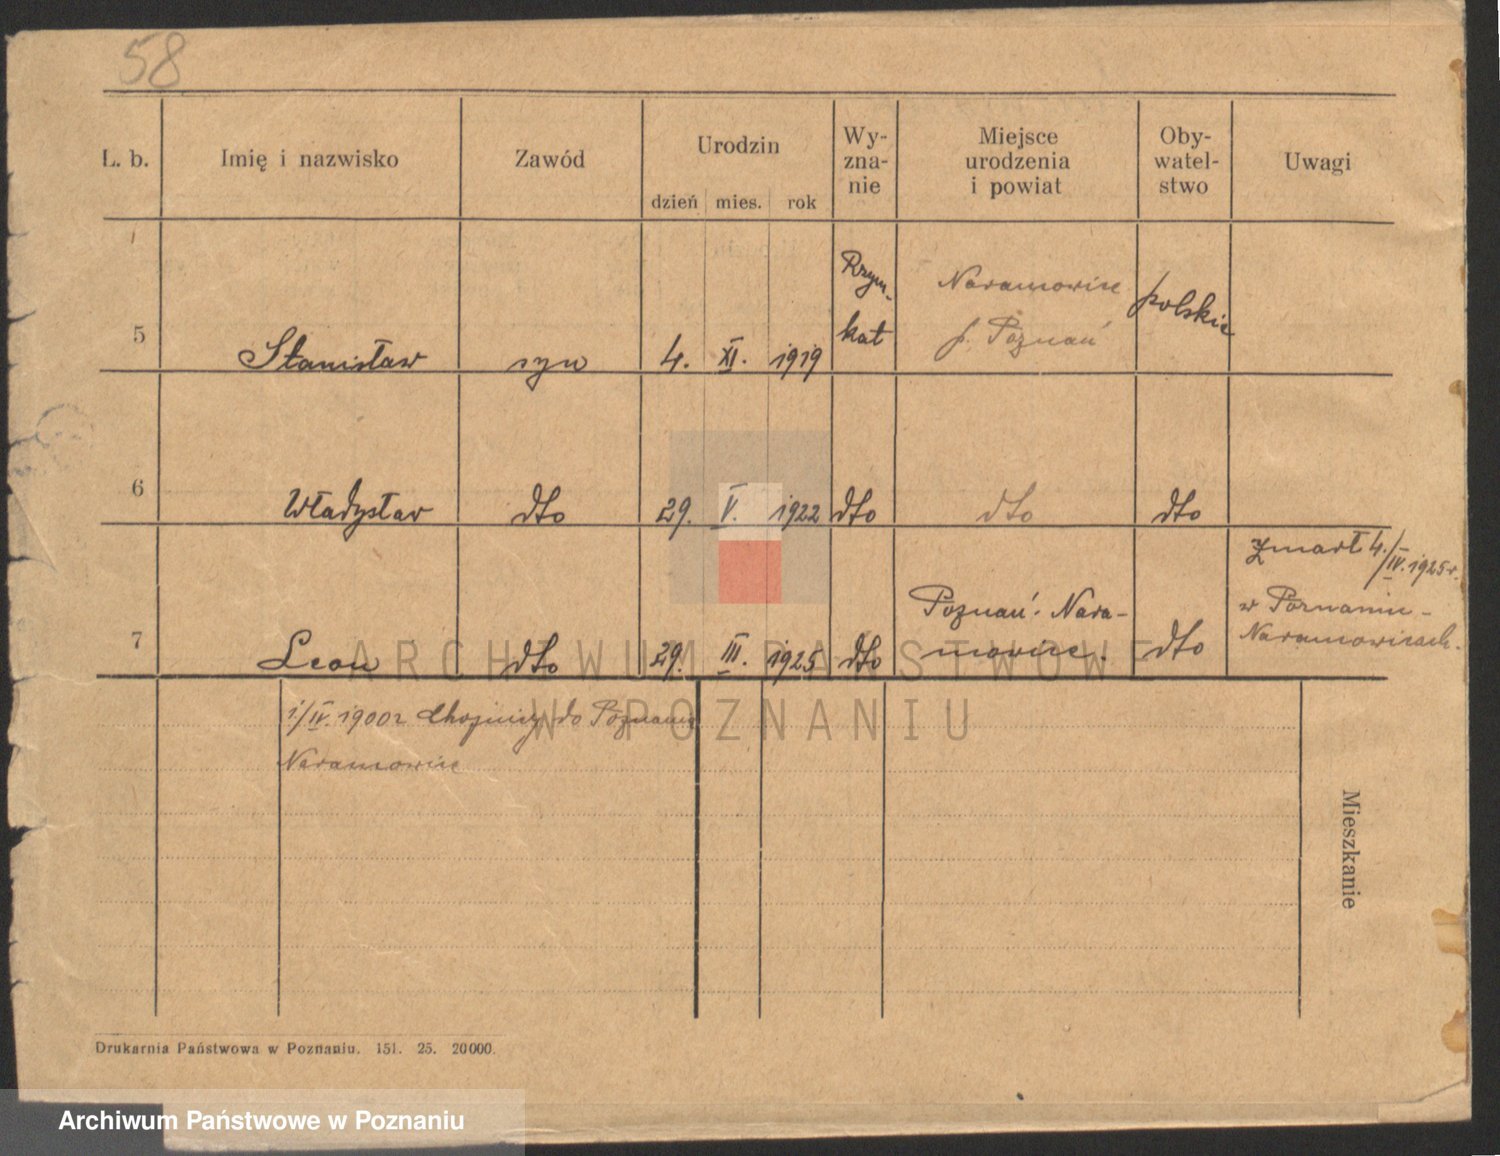 58
L. b. Imię i nazwisko Zawód Urodzin Wy-zna-nie Miejsce urodzenia i powiat Oby-watel-stwo Uwagi
dzień mies. rok
5 Stanisław syn 4. XI. 1919 Rzym.-kat Naramowice p. Poznań polskie
6 Władysław dto 29. V. 1922 dto dto dto
7 Leon dto 29. III. 1925 dto Poznań-Nara-mowice. dto Zmarł 4./IV. 1925 r. w Poznaniu-Naramowicach.
1/IV. 1900 r Chojnicy do Poznania
Naramowice
Mieszkanie
Drukarnia Państwowa w Poznaniu. 151. 25. 20000.
ARCHIWUM PAŃSTWOWE
W POZNANIU
Archiwum Państwowe w Poznaniu